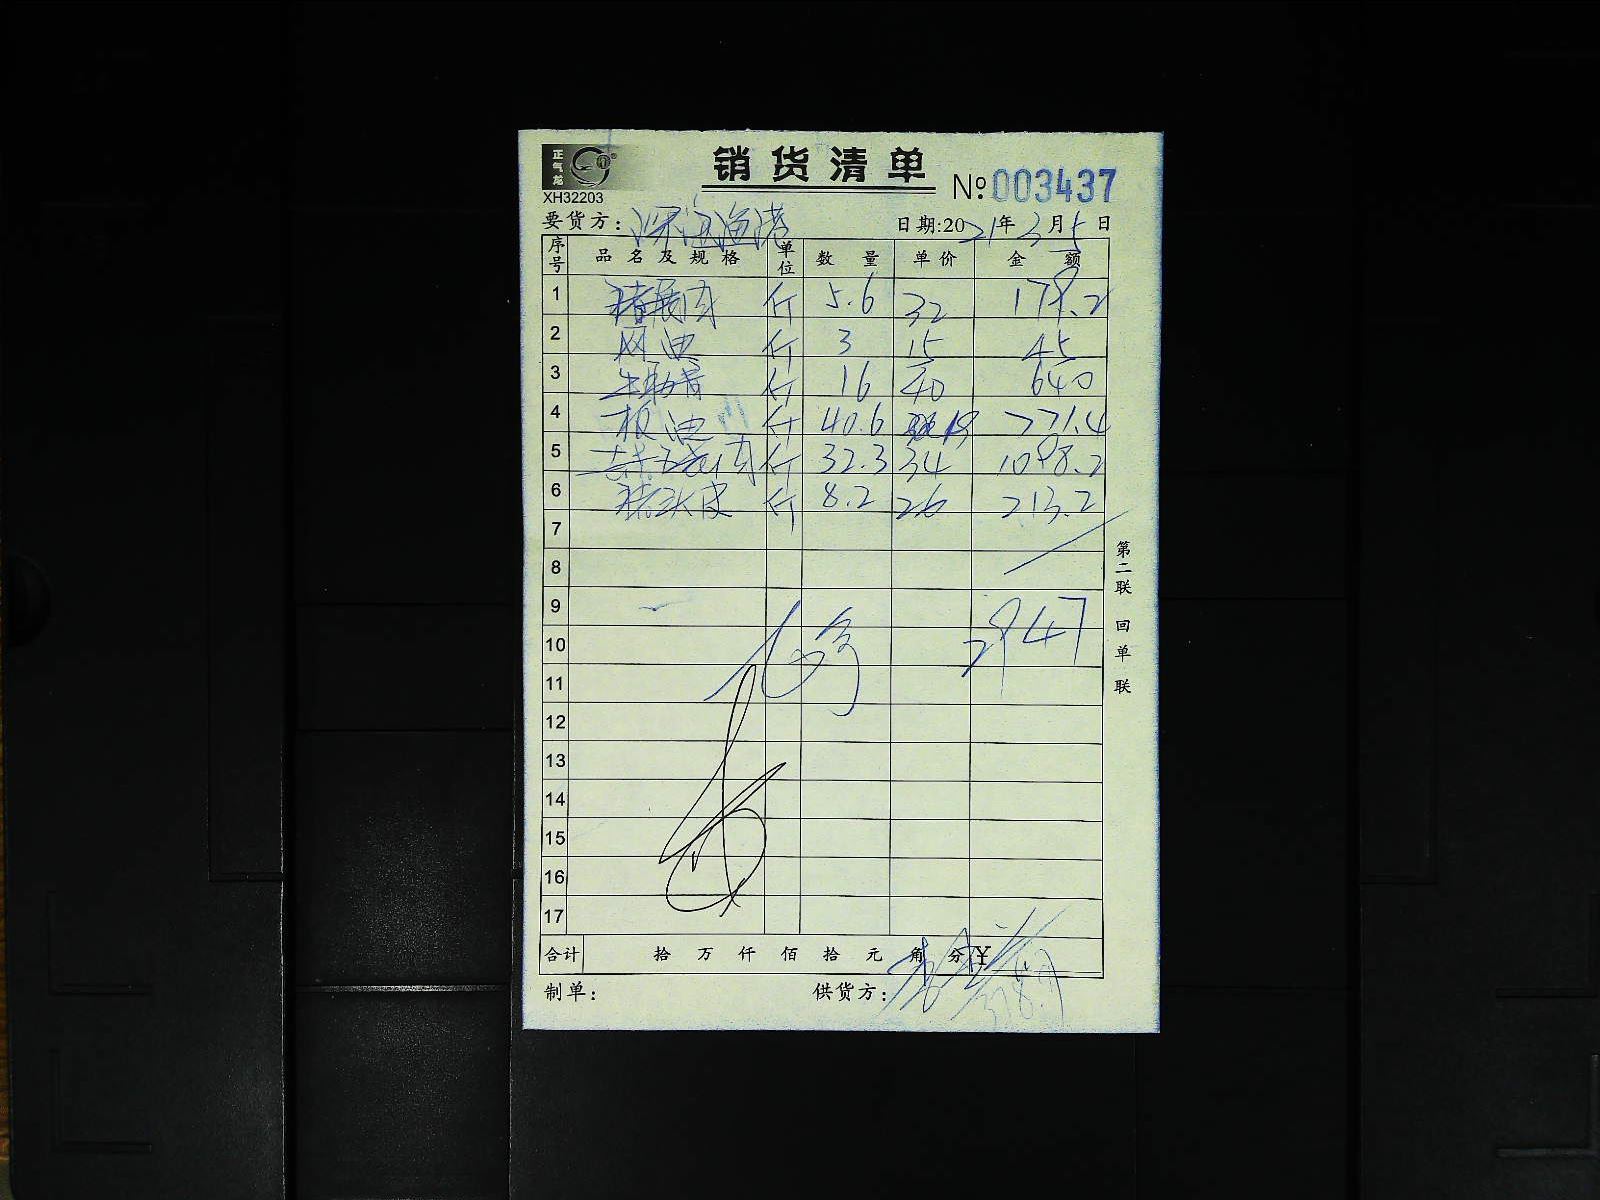 正气龙
销货清单
XH32203
№003437
要货方：深海渔港 日期:2021年3月5日
序号 品名及规格 单位 数量 单价 金额
1 猪展肉 斤 5.6 32 179.2
2 网油 斤 3 15 45
3 牛肋骨 斤 16 40 640
4 板油 斤 40.6 19 771.4
5 五花肉 斤 32.3 34 1098.2
6 猪头皮 斤 8.2 26 213.2
7
8
9
10 2947
11
12
13
14
15
16
17
合计 拾 万 仟 佰 拾 元 角 分 ¥
制单： 供货方：
第二联 回单联